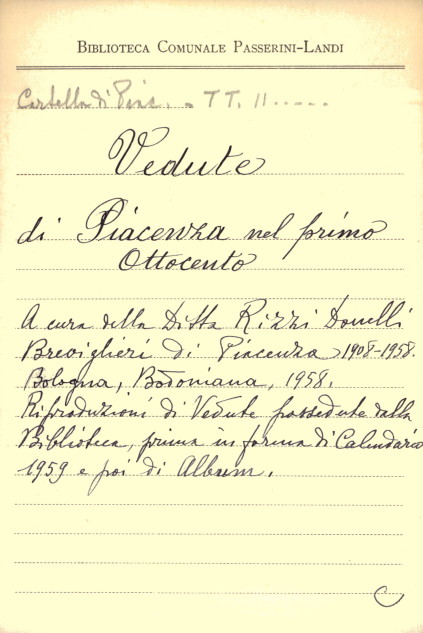 BIBLIOTECA COMUNALE PASSERINI-LANDI
Cartella di Piac. - TT. 11.....
Vedute
di Piacenza nel primo
Ottocento
A cura della Ditta Rizzi Donelli
Breviglieri di Piacenza 1908-1958.
Bologna, Bodoniana, 1958.
Riproduzioni di Vedute possedute dalla
Biblioteca, prima in forma di Calendario
1959 e poi di Album.
C